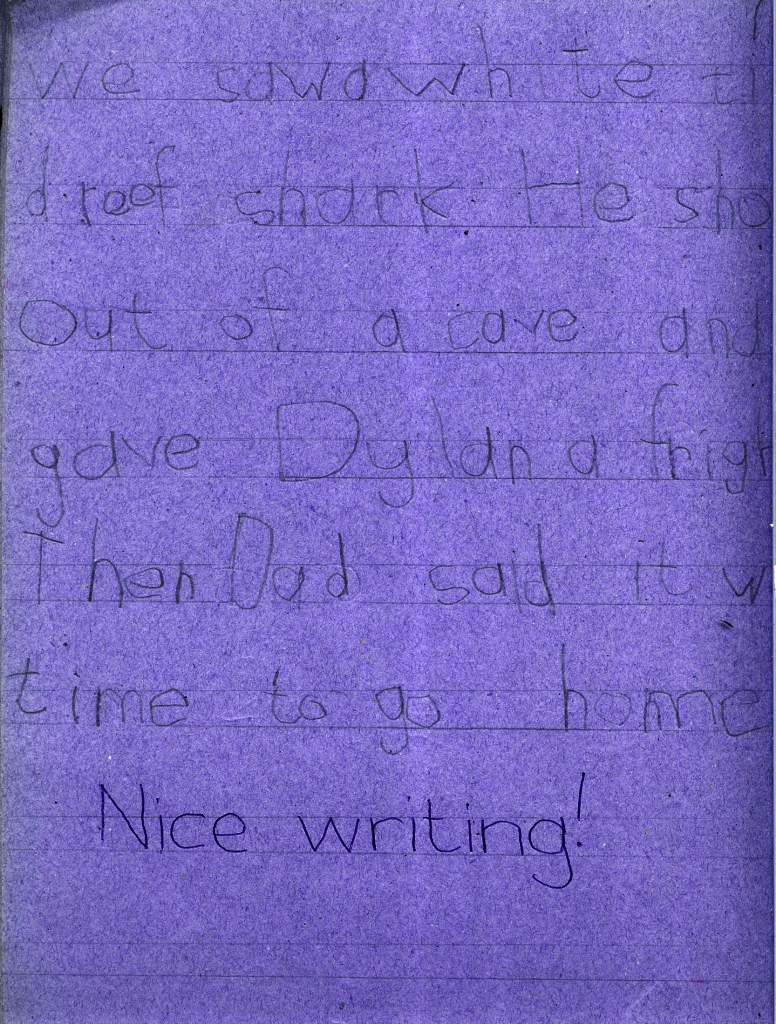 We saw a white ti
d reef shark. He sho
out of a cave and
gave Dylan a frigh
Then Dad said it w
time to go home
Nice writing!